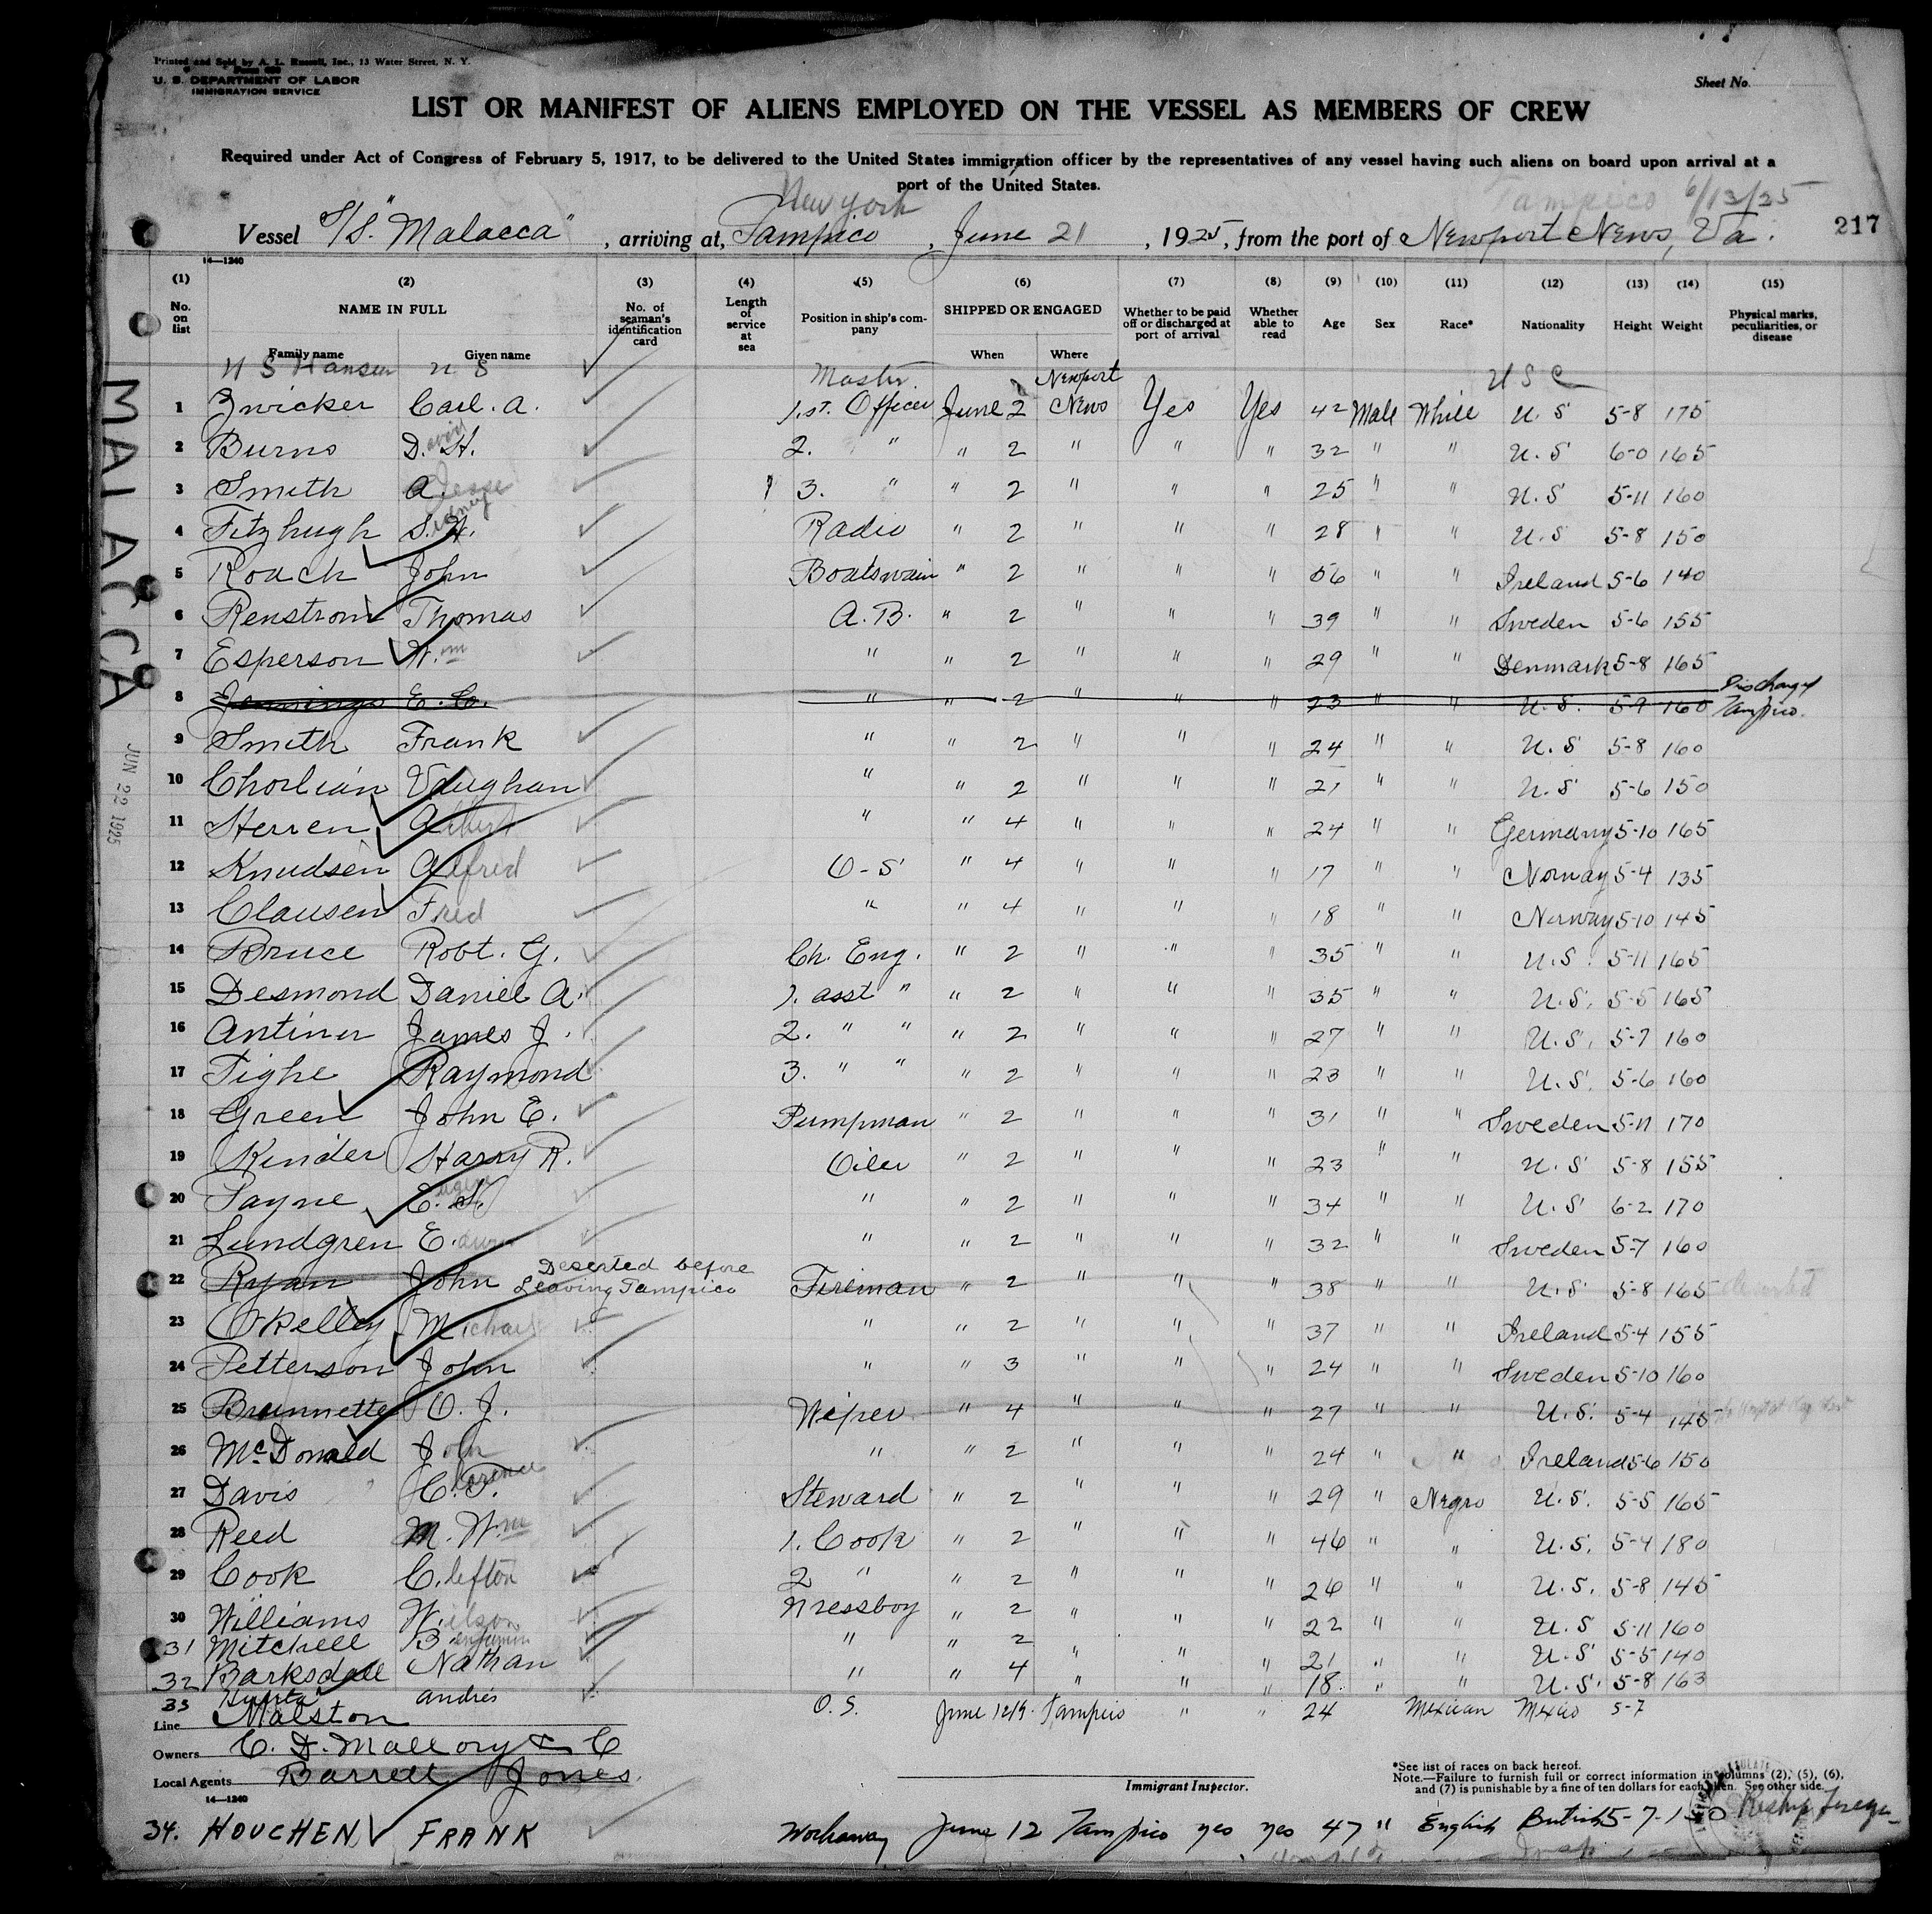 Printed and Sold by A. L. Russell, Inc., 13 Water Street, N. Y.
U. S. DEPARTMENT OF LABOR
IMMIGRATION SERVICE
Sheet No.
LIST OR MANIFEST OF ALIENS EMPLOYED ON THE VESSEL AS MEMBERS OF CREW
Required under Act of Congress of February 5, 1917, to be delivered to the United States immigration officer by the representatives of any vessel having such aliens on board upon arrival at a
port of the United States.
New York Tampico 6/13/25
Vessel S/S. "Malacca", arriving at, Tampico, June 21, 1925, from the port of Newport News, Va. 217
14—1240
(1) (2) (3) (4) (5) (6) (7) (8) (9) (10) (11) (12) (13) (14) (15)
No. on list NAME IN FULL Family name Given name No. of seaman's identification card Length of service at sea Position in ship's company SHIPPED OR ENGAGED When Where Whether to be paid off or discharged at port of arrival Whether able to read Age Sex Race* Nationality Height Weight Physical marks, peculiarities, or disease
Hansen Master U S C
1 Zwicker Carl. A. 1.st. Officer June 2 Newport News Yes Yes 42 Male White U. S 5-8 175
2 Burns David H. 2. " " 2 " " " 32 " " U. S 6-0 165
3 Smith A. Jesse 3. " " 2 " " " 25 " " U. S 5-11 160
4 Fitzhugh S. H. Sidney Radio " 2 " " " 28 " " U. S 5-8 150
5 Roach John Boatswain " 2 " " " 56 " " Ireland 5-6 140
6 Renstrom Thomas A. B. " 2 " " " 39 " " Sweden 5-6 155
7 Esperson Wm " " 2 " " " 29 " " Denmark 5-8 165
8 Jennings E. C. " " 2 " " " 23 " " U. S. 5-9 160 Discharged Tampico.
9 Smith Frank " " 2 " " " 24 " " U. S 5-8 160
10 Chorlian Vaughan " " 2 " " " 21 " " U. S 5-6 150
11 Herren Albert " " 4 " " " 24 " " Germany 5-10 165
12 Knudsen Alfred O-S " 4 " " " 17 " " Norway 5-4 135
13 Clausen Fred " " 4 " " " 18 " " Norway 5-10 145
14 Bruce Robt. G. Ch. Eng. " 2 " " " 35 " " U. S. 5-11 165
15 Desmond Daniel A. 1. asst " " 2 " " " 35 " " U. S. 5-5 165
16 Antiner James J. 2. " " " 2 " " " 27 " " U. S. 5-7 160
17 Tighe Raymond 3. " " " 2 " " " 23 " " U. S. 5-6 160
18 Green John E. Pumpman " 2 " " " 31 " " Sweden 5-11 170
19 Kinder Harry R. Oiler " 2 " " " 23 " " U. S 5-8 155
20 Payne E. H. " " 2 " " " 34 " " U. S 6-2 170
21 Lundgren E. " " 2 " " " 32 " " Sweden 5-7 160
22 Ryan John Deserted before Leaving Tampico Fireman " 2 " " " 38 " " U. S 5-8 165 deserted
23 O'Kelley Michael " " 2 " " " 37 " " Ireland 5-4 155
24 Petterson John " " 3 " " " 24 " " Sweden 5-10 160
25 Brunnette O. J. Wiper " 4 " " " 27 " " U. S. 5-4 145
26 McDonald John " " 2 " " " 24 " " Ireland 5-6 150
27 Davis C. F. Clarence Steward " 2 " " " 29 " Negro U. S. 5-5 165
28 Reed M. Wm 1. Cook " 2 " " " 46 " " U. S. 5-4 180
29 Cook Clefton 2 " " 2 " " " 26 " " U. S. 5-8 145
30 Williams Wilson Messboy " 2 " " " 22 " " U. S 5-11 160
31 Mitchell Benjamin " " 2 " " " 21 " " U. S 5-5 140
32 Barksdale Nathan " " 4 " " " 18 " " U. S. 5-8 163
33 Huerta Andrés O. S. June 12/9 Tampico " " 24 Mexican Mexico 5-7
Line Malston
Owners C. D. Mallory & C
Local Agents Barrett Jones.
14—1240
Immigrant Inspector.
*See list of races on back hereof.
Note.—Failure to furnish full or correct information in columns (2), (5), (6),
and (7) is punishable by a fine of ten dollars for each alien. See other side.
34. HOUCHEN FRANK Workaway June 12 Tampico yes yes 47 " English British 5-7 Reship foreign
MALACCA
JUN 22 1925